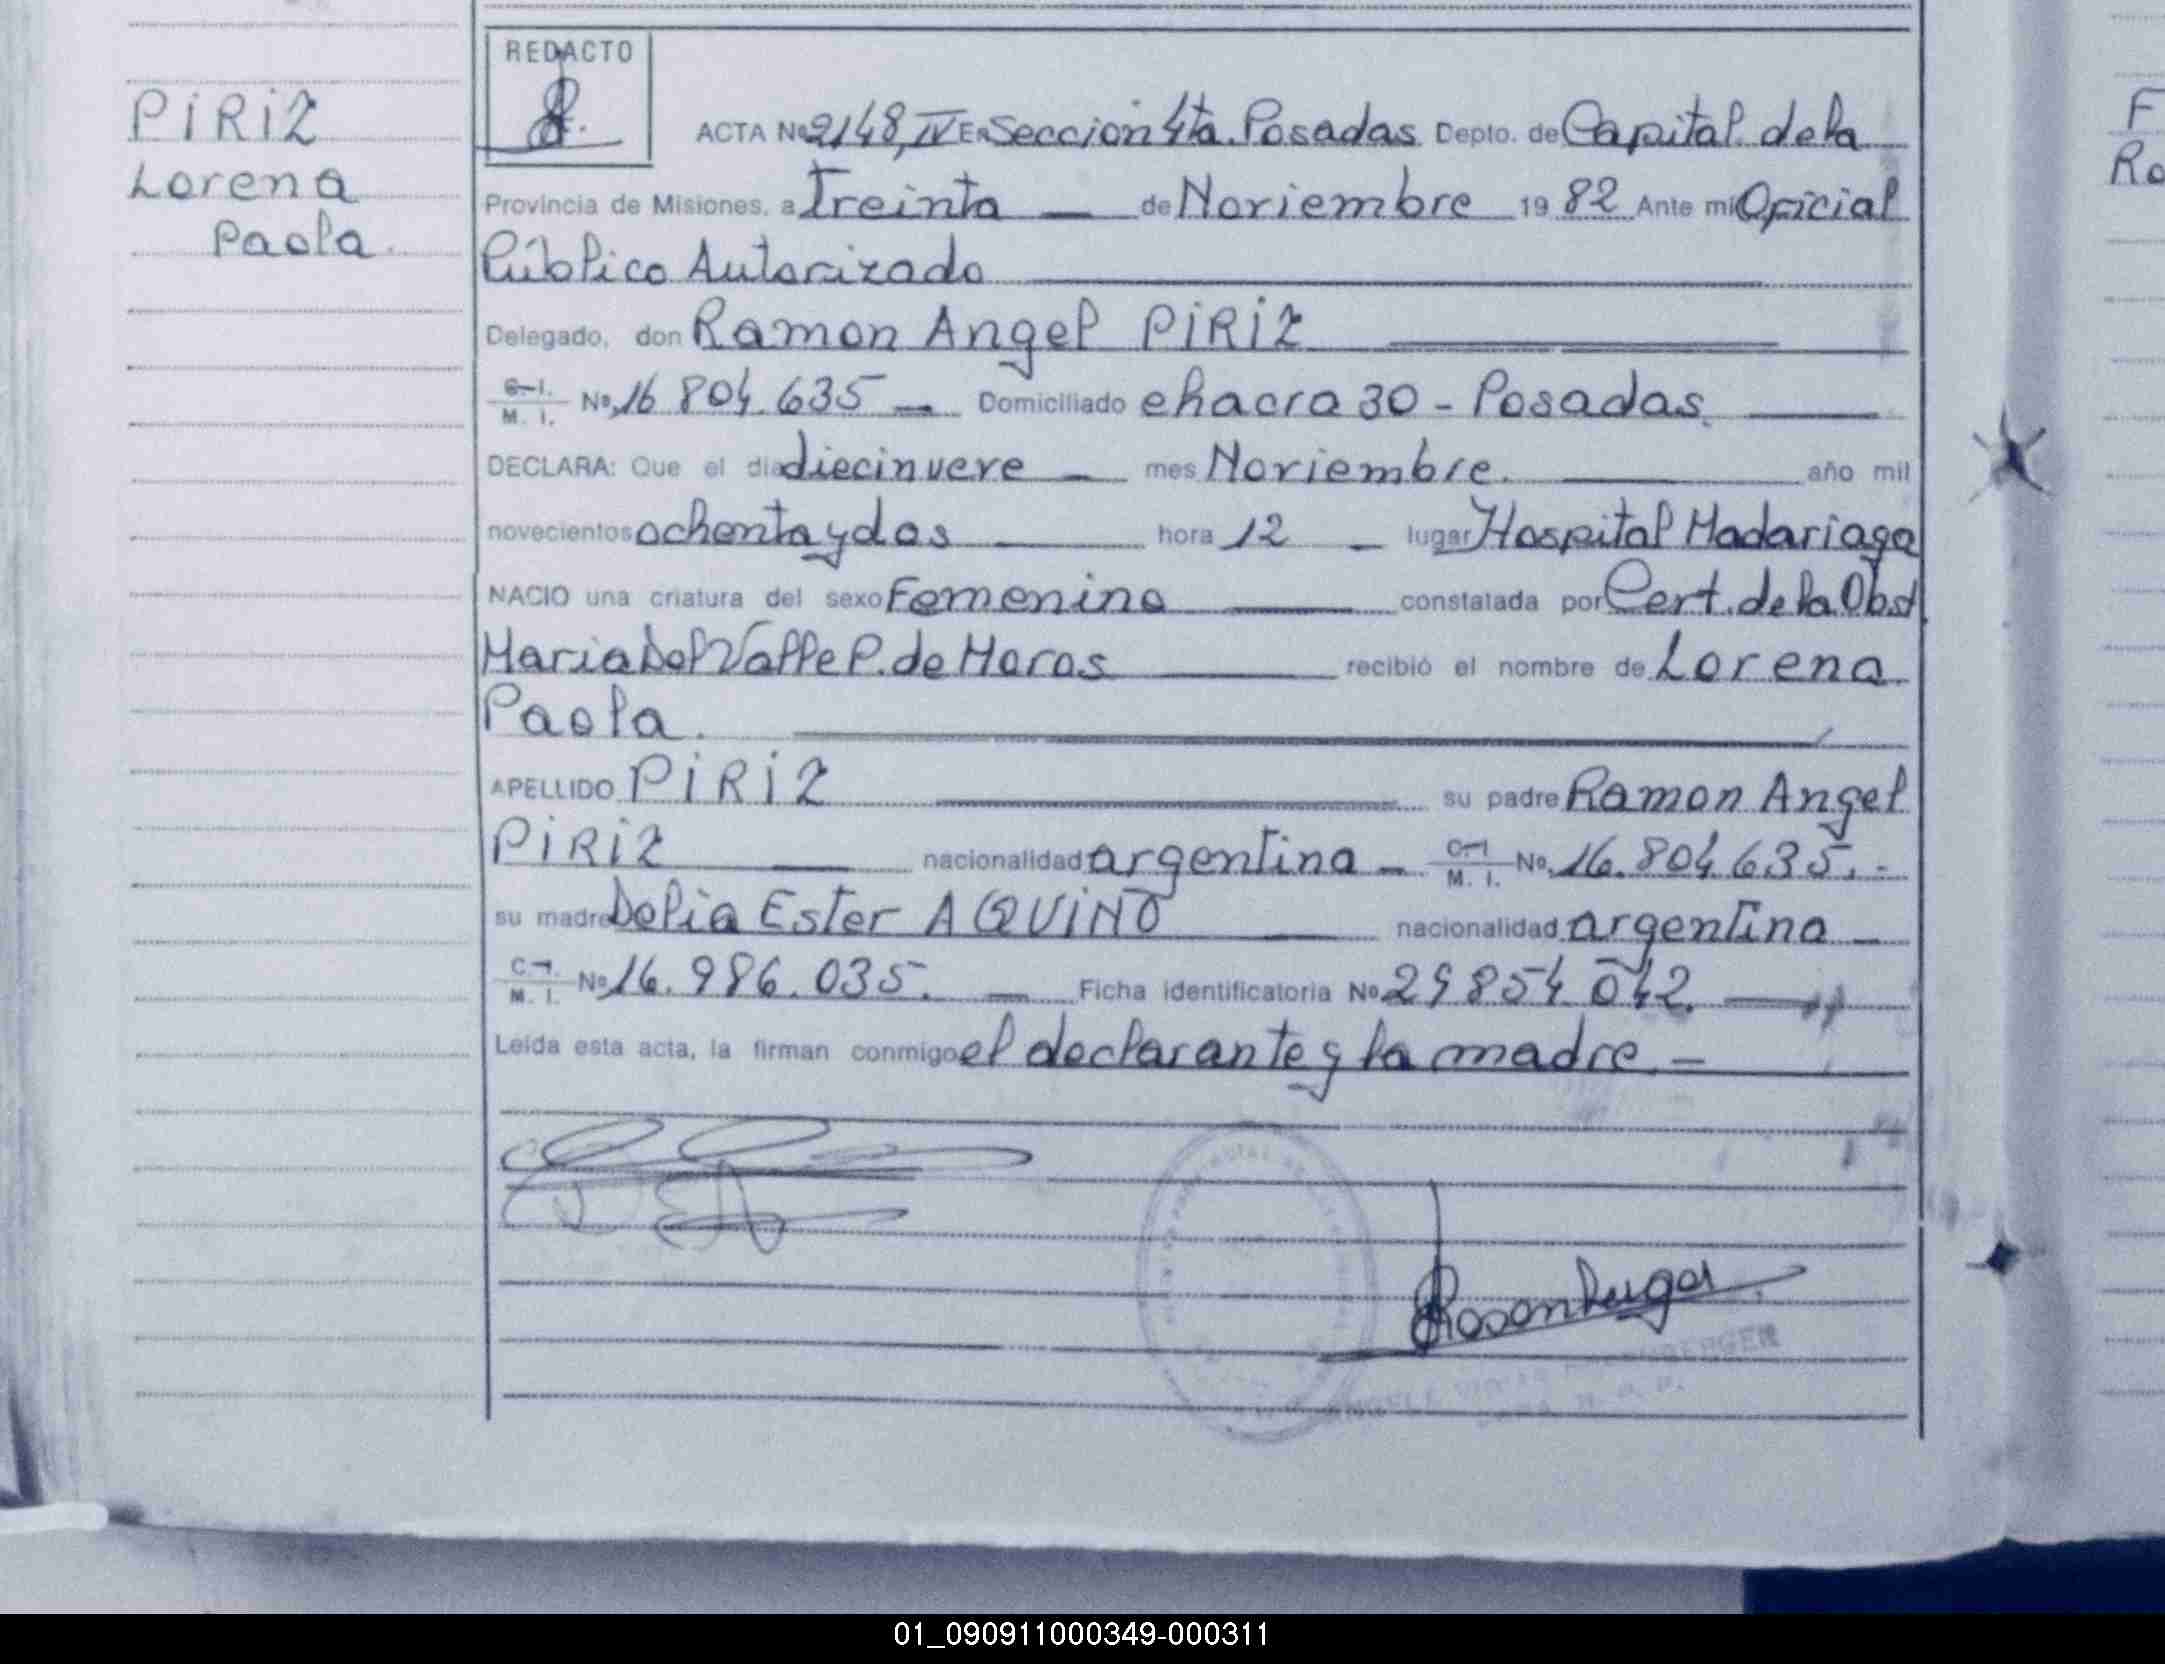 PIRIZ
Lorena
Paola.
REDACTO
ACTA Nº 2148, IV En Seccion 4ta. Posadas Depto. de Capital de la
Provincia de Misiones, a Treinta — de Noviembre 19 82 Ante mi Oficial
Público Autorizado
Delegado, don Ramon Angel PIRIZ
C. I. M. I. Nº 16 804.635 — Domiciliado chacra 30 - Posadas.
DECLARA: Que el día diecinueve — mes Noviembre. año mil
novecientos ochenta y dos hora 12 — lugar Hospital Madariaga
NACIO una criatura del sexo Femenino constatada por Cert. de la Obst
Maria Del Valle P. de Moros recibió el nombre de Lorena
Paola.
APELLIDO PIRIZ su padre Ramon Angel
PIRIZ nacionalidad argentina — C. I. M. I. Nº 16.804.635. -
su madre Delia Ester AQUINO nacionalidad argentina —
C. I. M. I. Nº 16.986.035. — Ficha identificatoria Nº 29854.042.
Leída esta acta, la firman conmigo el declarante y la madre. —
Rosenberger
F
Ro
01_090911000349-000311